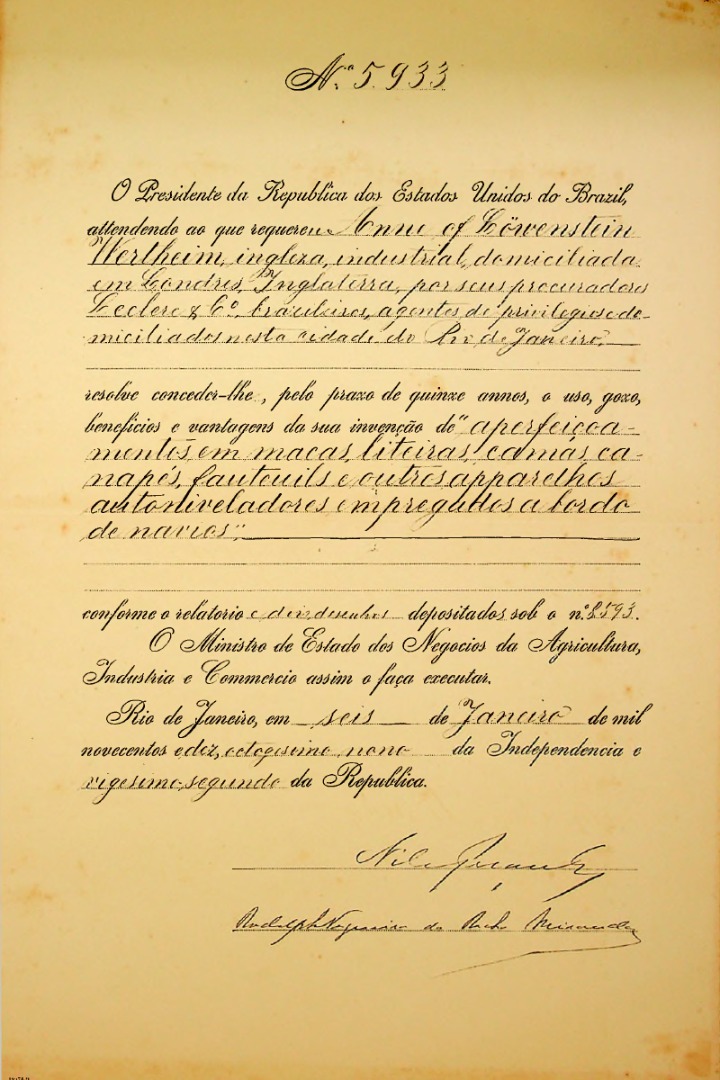 Nº 5.933
O Presidente da Republica dos Estados Unidos do Brazil,
attendendo ao que requereu Anne of Löwenstein
Wertheim, ingleza, industrial, domiciliada
em Londres, Inglaterra, por seus procuradores
Leclerc & Cº, brazileiros, agentes de privilegios e do-
miciliados nesta cidade do Rio de Janeiro,
resolve conceder-lhe, pelo prazo de quinze annos, o uso, gozo,
beneficios e vantagens da sua invenção de "aperfeiçoa-
mentos em macas, liteiras, camas, ca-
napés, fauteuils e outros apparelhos
autoniveladores empregados a bordo
de navios",
conforme o relatorio e desenhos depositados sob o nº 8.593.
O Ministro de Estado dos Negocios da Agricultura,
Industria e Commercio assim o faça executar.
Rio de Janeiro, em seis de Janeiro de mil
novecentos e dez, octogesimo nono da Independencia e
vigesimo segundo da Republica.
Nilo Peçanha
Rodolpho Nogueira da Rocha Miranda